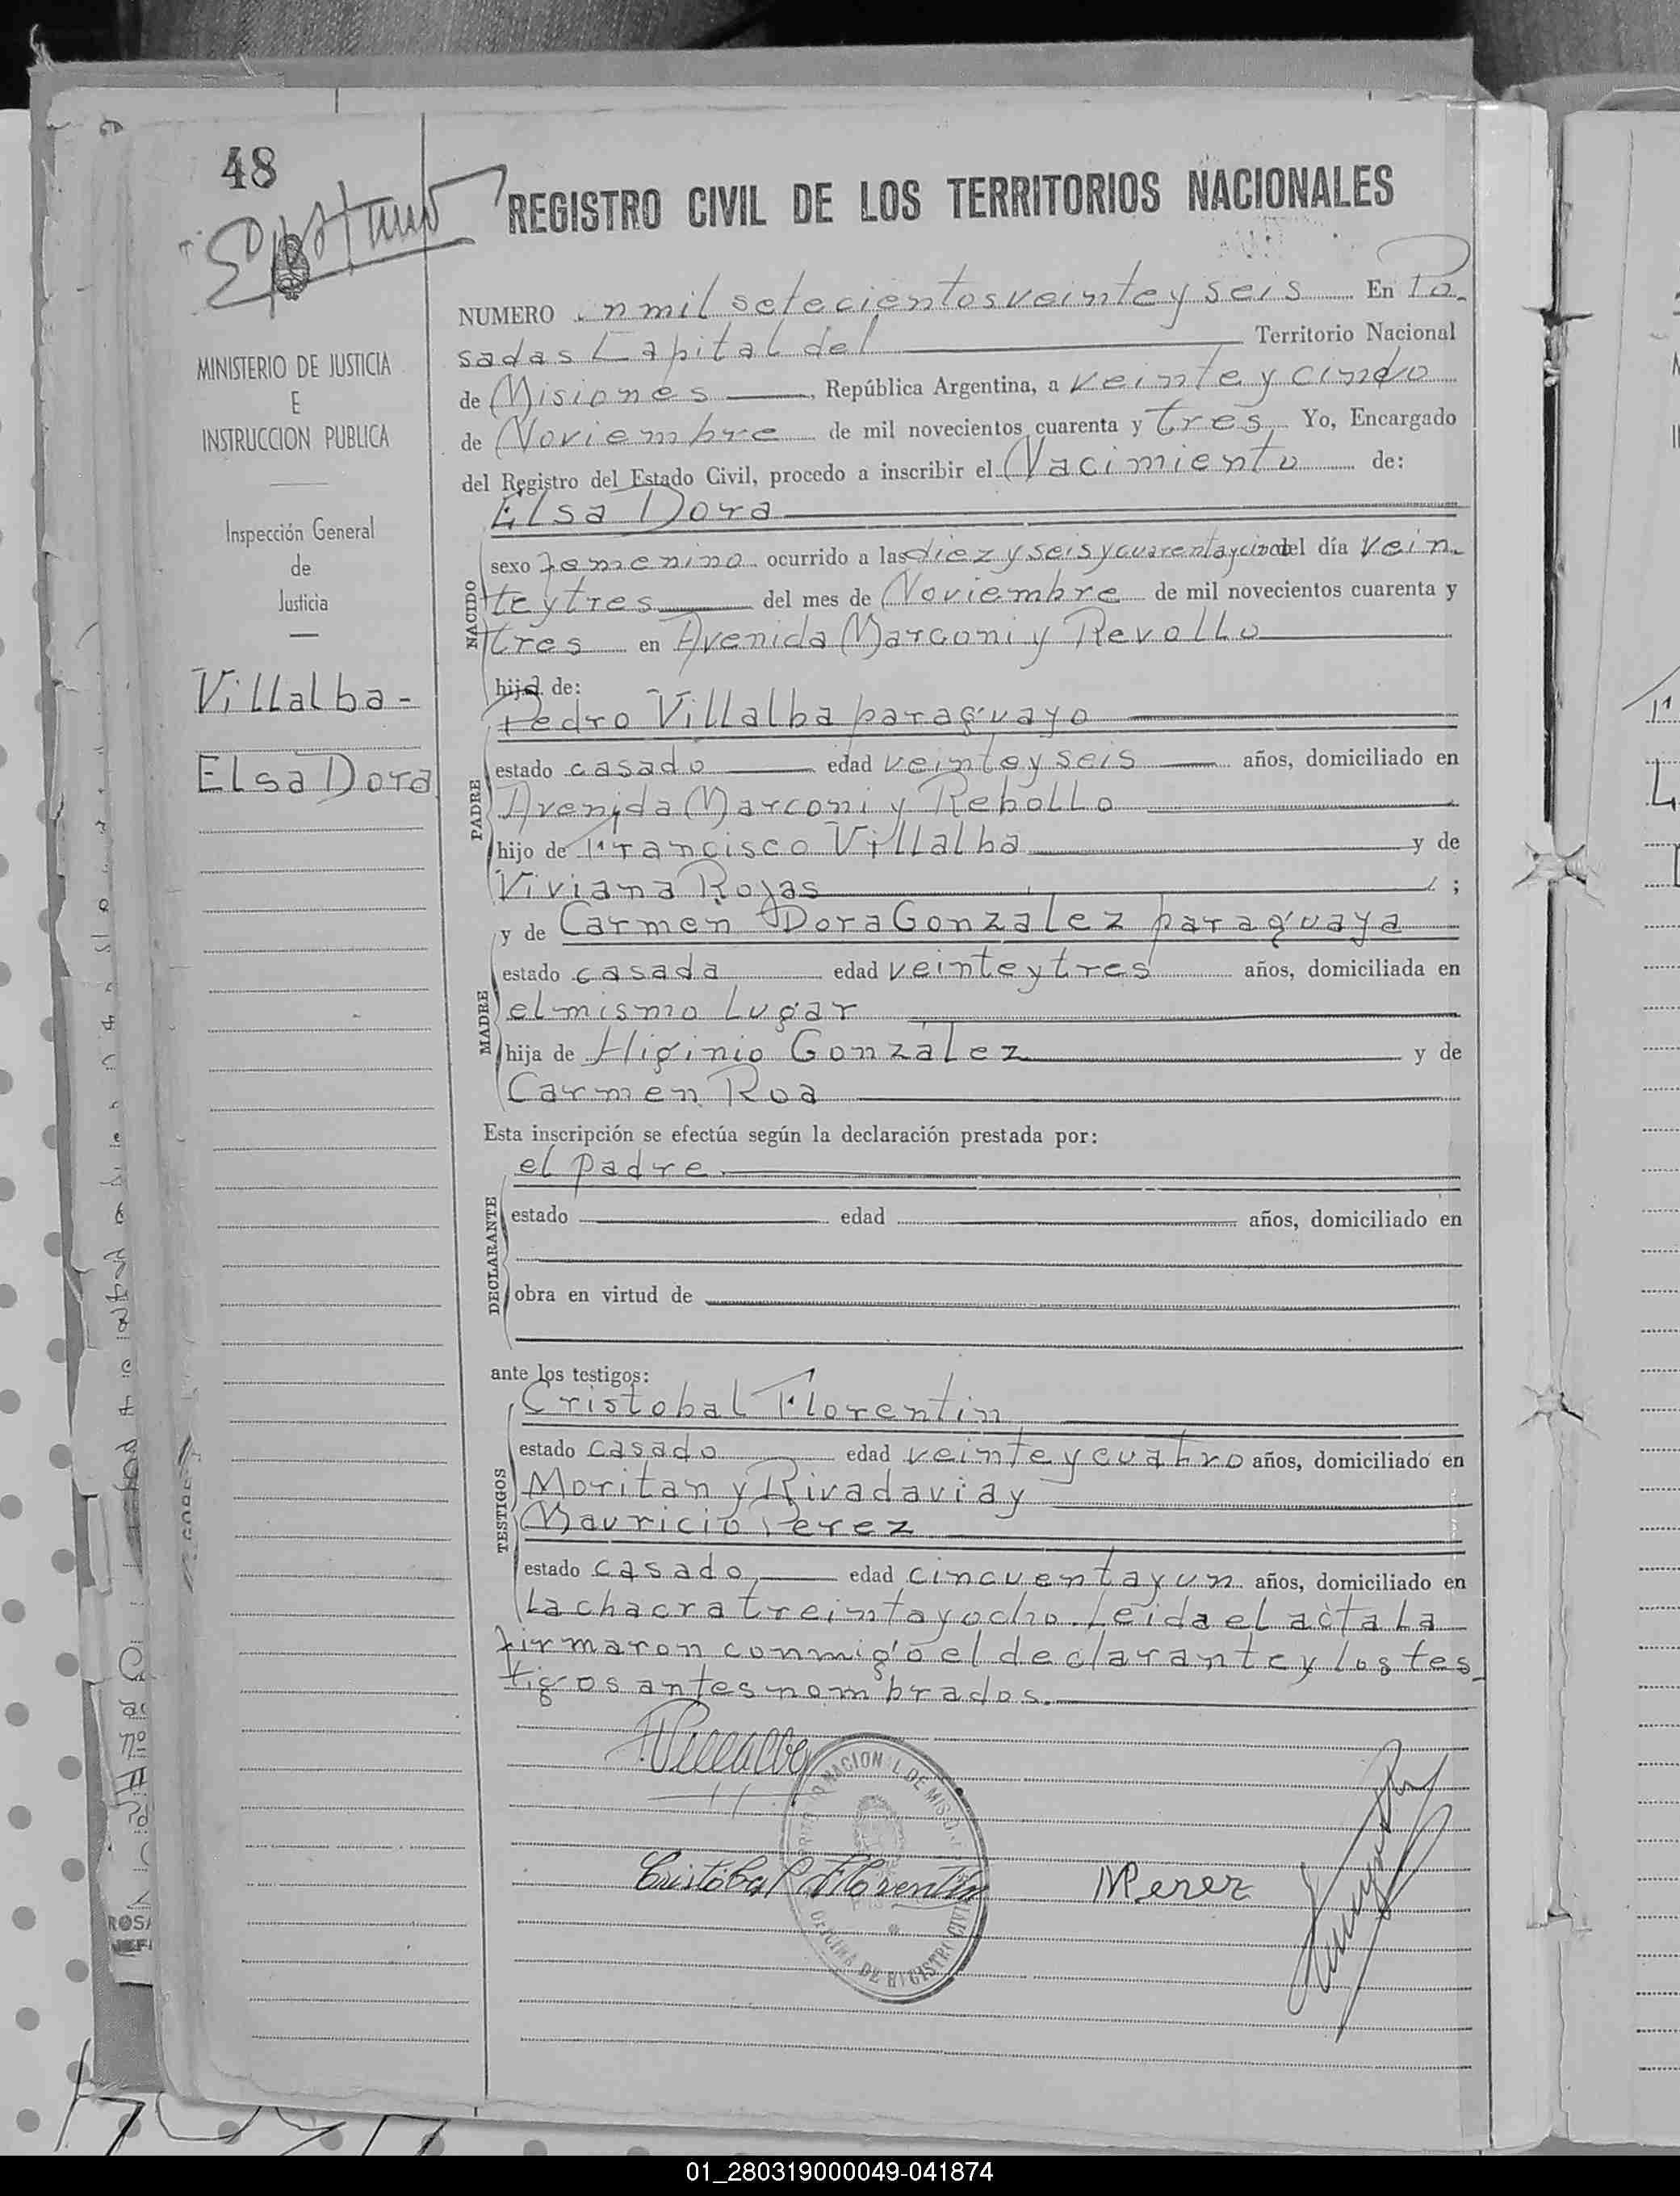 48
REGISTRO CIVIL DE LOS TERRITORIOS NACIONALES
MINISTERIO DE JUSTICIA
E
INSTRUCCION PUBLICA
Inspección General
de
Justicia
Villalba-
Elsa Dora
NUMERO un mil setecientos veinte y seis En Po-
sadas Capital del Territorio Nacional
de Misiones, República Argentina, a veinte y cinco
de Noviembre de mil novecientos cuarenta y tres, Yo, Encargado
del Registro del Estado Civil, procedo a inscribir el Nacimiento de:
Elsa Dora
NACIDO
sexo femenino ocurrido a las diez y seis y cuarenta y cinco del día vein-
te y tres del mes de Noviembre de mil novecientos cuarenta y
tres en Avenida Marconi y Revollo
hija de:
PADRE
Pedro Villalba paraguayo
estado casado edad veinte y seis años, domiciliado en
Avenida Marconi y Rebollo
hijo de Francisco Villalba y de
Viviana Rojas ;
MADRE
y de Carmen Dora Gonzalez paraguaya
estado casada edad veinte y tres años, domiciliada en
el mismo lugar
hija de Higinio Gonzalez y de
Carmen Roa
Esta inscripción se efectúa según la declaración prestada por:
el padre
DECLARANTE
estado edad años, domiciliado en
obra en virtud de
ante los testigos:
TESTIGOS
Cristobal Florentin
estado casado edad veinte y cuatro años, domiciliado en
Moritan y Rivadavia y
Mauricio Perez
estado casado edad cincuenta y un años, domiciliado en
la chacra treinta y ocho. Leida el acta la
firmaron conmigo el declarante y los tes-
tigos antes nombrados.
P. Villalba
NACIONAL DE MISIONES
OFICINA DE REGISTRO CIVIL
Cristóbal Florentín
MPerez
01_280319000049-041874